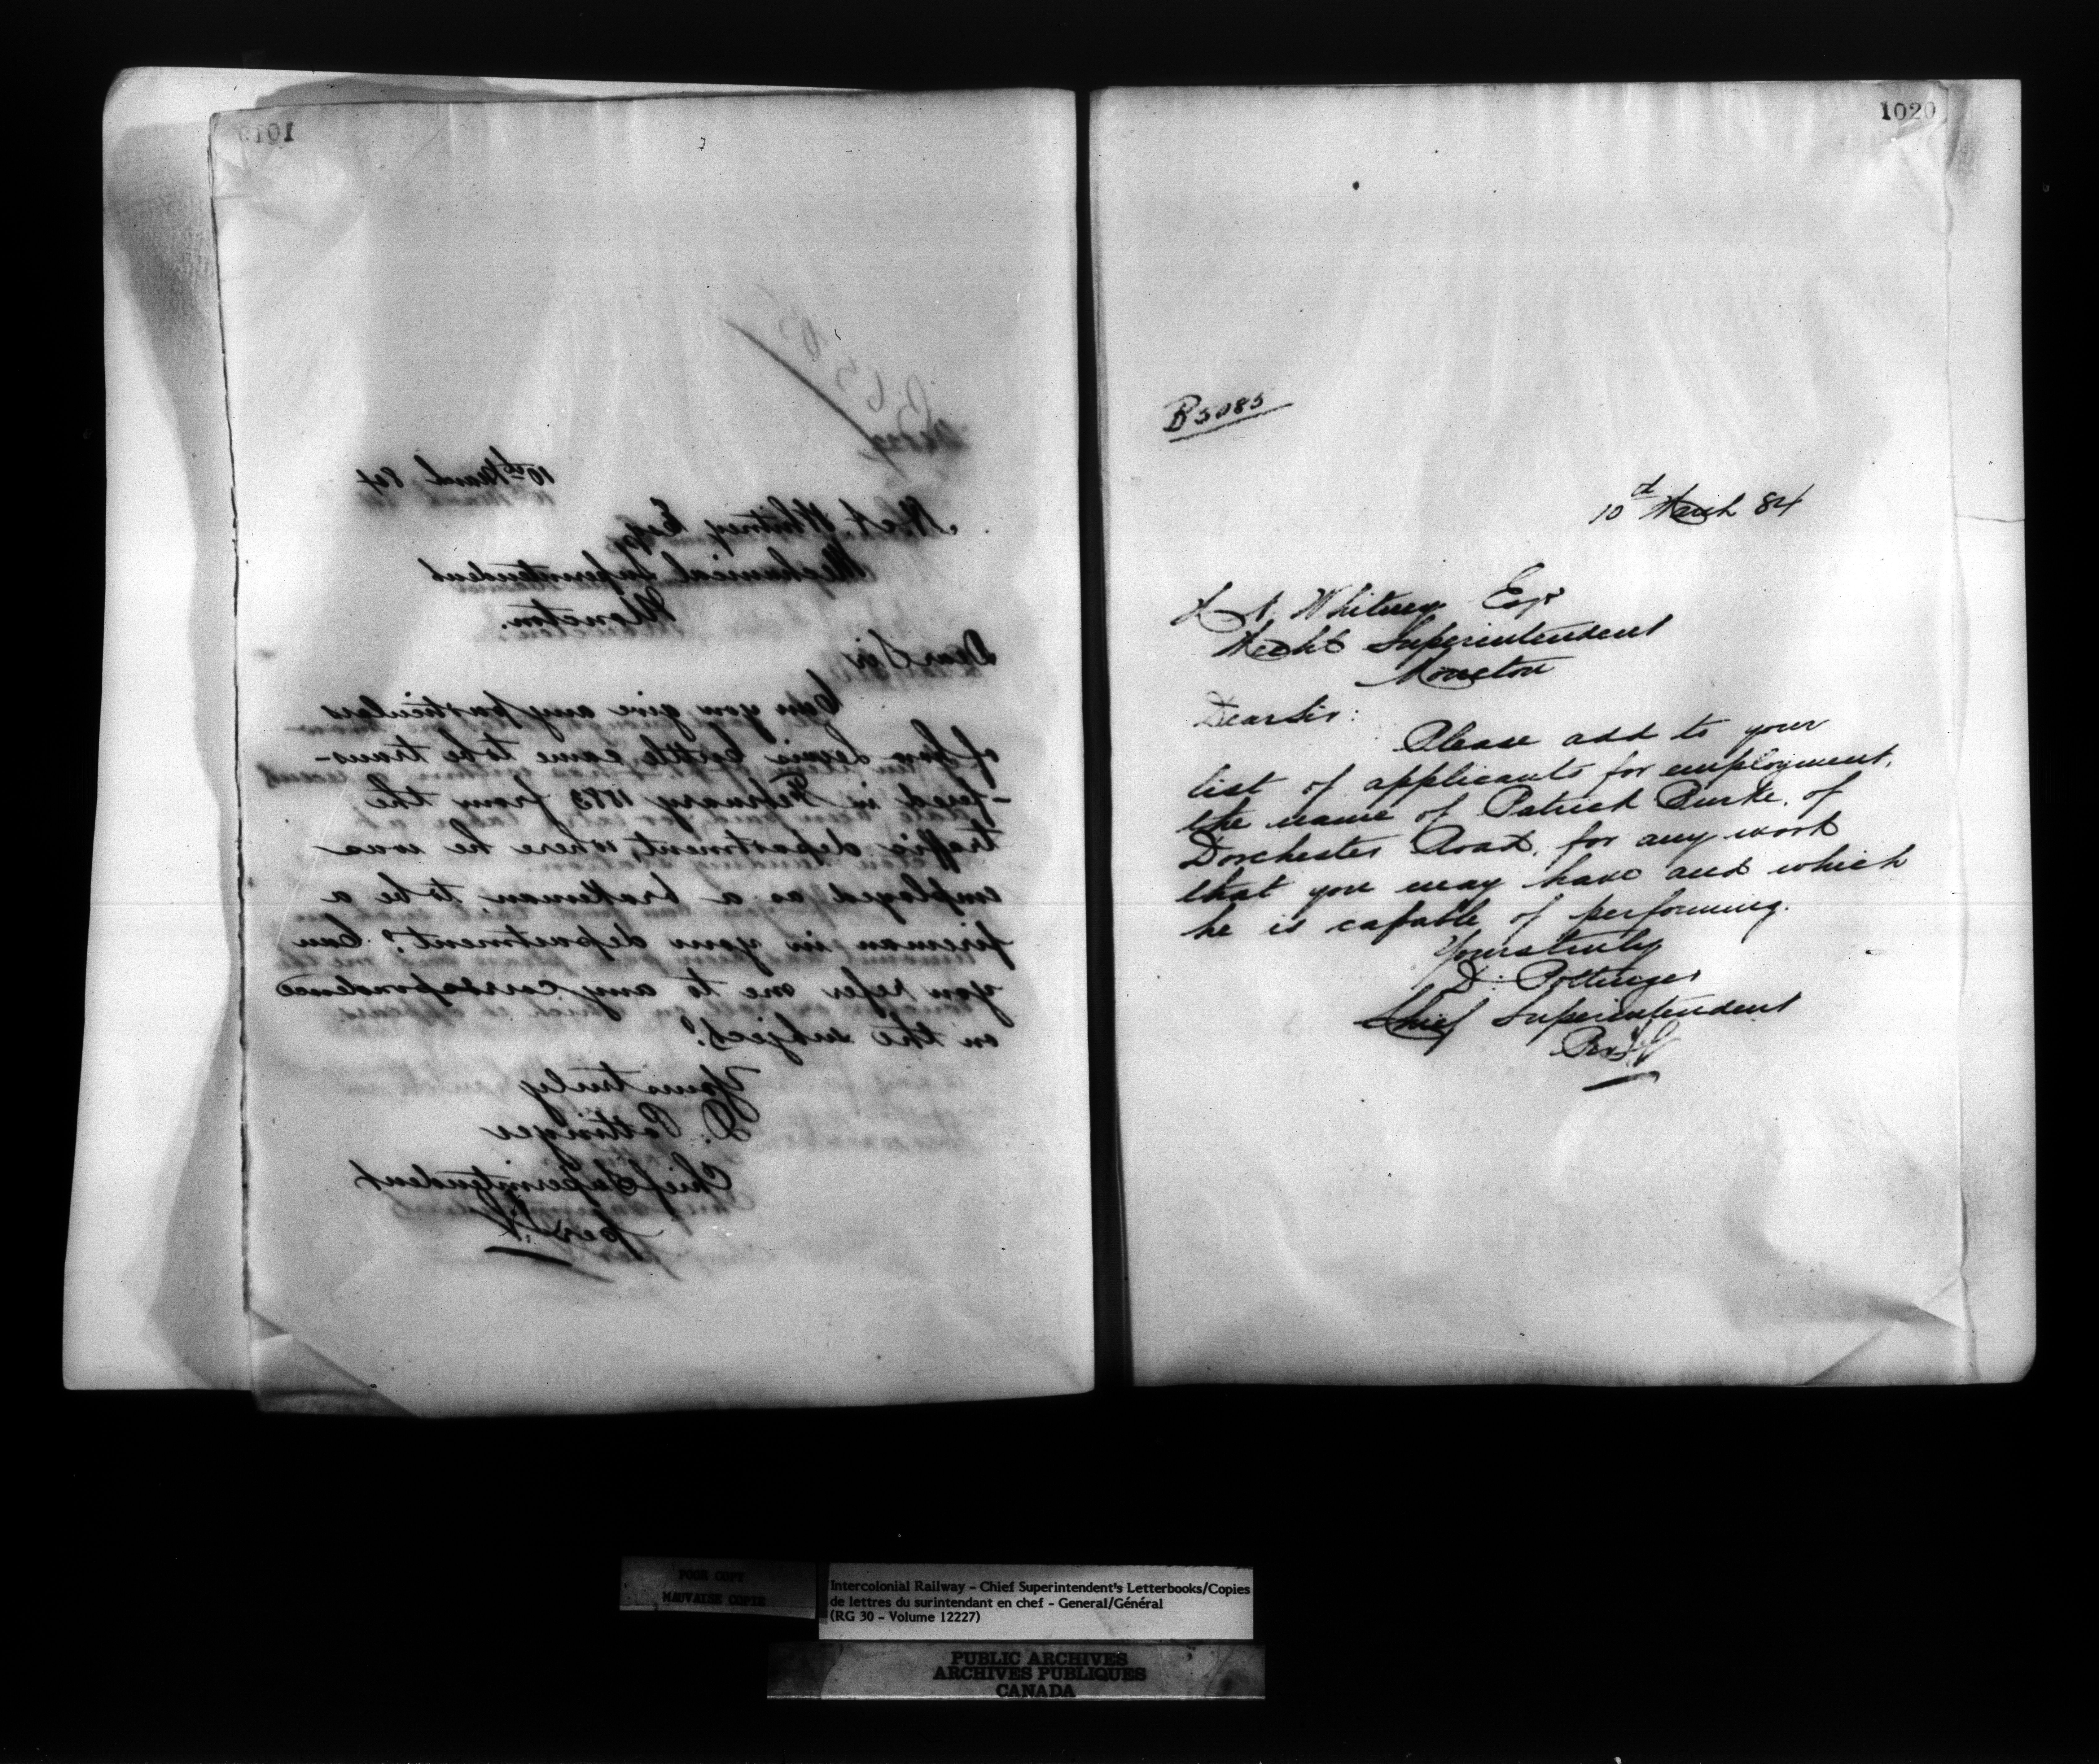 1019
10th March 84
H. A. Whitney Esq
Mechanical Superintendent
Moncton.
Dear Sir
Can you give any particulars
of how Lewis Cottle came to be trans-
-fered in February 1883 from the
traffic department, where he was
employed as a brakeman, to be a
fireman in your department? Can
you refer me to any correspondence
on the subject?
Yours truly
D. Pottinger
Chief Superintendent
per
1020
B5085
10th March 84
H A Whitney Esqr
Mechl Superintendent
Moncton
Dear Sir:
Please add to your
list of applicants for employment,
the name of Patrick Burke, of
Dorchester Road, for any work
that you may have and which
he is capable of performing.
Yours truly
D. Pottinger
Chief Superintendent
Per
POOR COPY
MAUVAISE COPIE
Intercolonial Railway - Chief Superintendent's Letterbooks/Copies
de lettres du surintendant en chef - General/Général
(RG 30 - Volume 12227)
PUBLIC ARCHIVES
ARCHIVES PUBLIQUES
CANADA